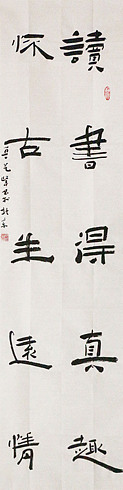 讀書得真趣
懷古生遠情